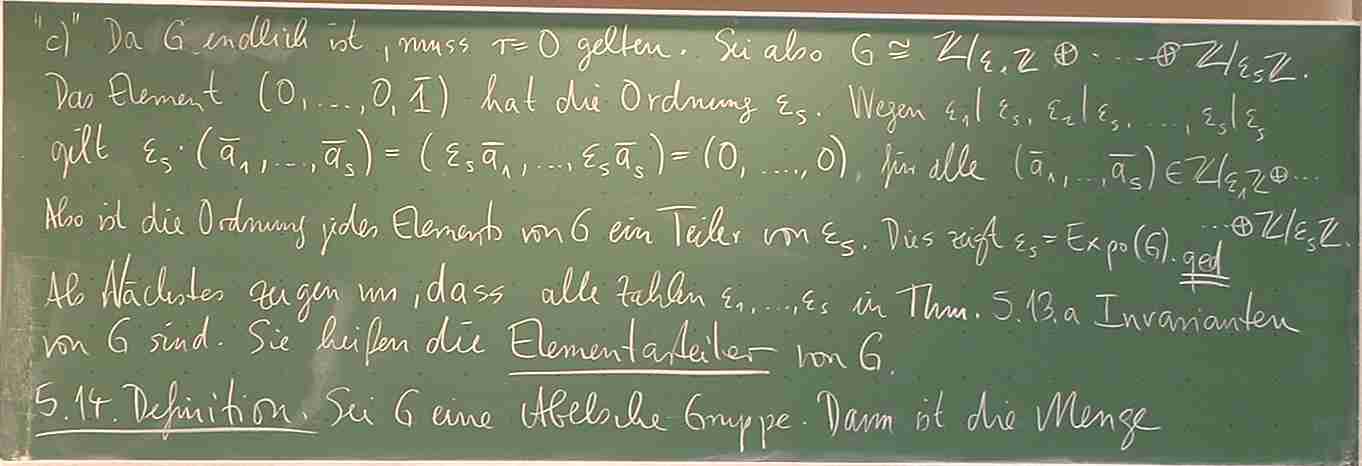 "c)" Da G endlich ist, muss r=0 gelten. Sei also G ≅ ℤ/ε₁ℤ ⊕ ..... ⊕ ℤ/εₛℤ.
Das Element (0,...,0,1̄) hat die Ordnung εₛ. Wegen ε₁|εₛ, ε₂|εₛ, ..., εₛ|εₛ
gilt εₛ·(ā₁,...,āₛ) = (εₛā₁,...,εₛāₛ) = (0,....,0), für alle (ā₁,...,āₛ) ∈ ℤ/ε₁ℤ⊕...
...⊕ℤ/εₛℤ.
Also ist die Ordnung jedes Elements von G ein Teiler von εₛ. Dies zeigt εₛ = Expo(G). qed
Als Nächstes zeigen wir, dass alle Zahlen ε₁,...,εₛ in Thm. 5.13.a Invarianten
von G sind. Sie heißen die Elementarteiler von G.
5.14. Definition. Sei G eine Abelsche Gruppe. Dann ist die Menge